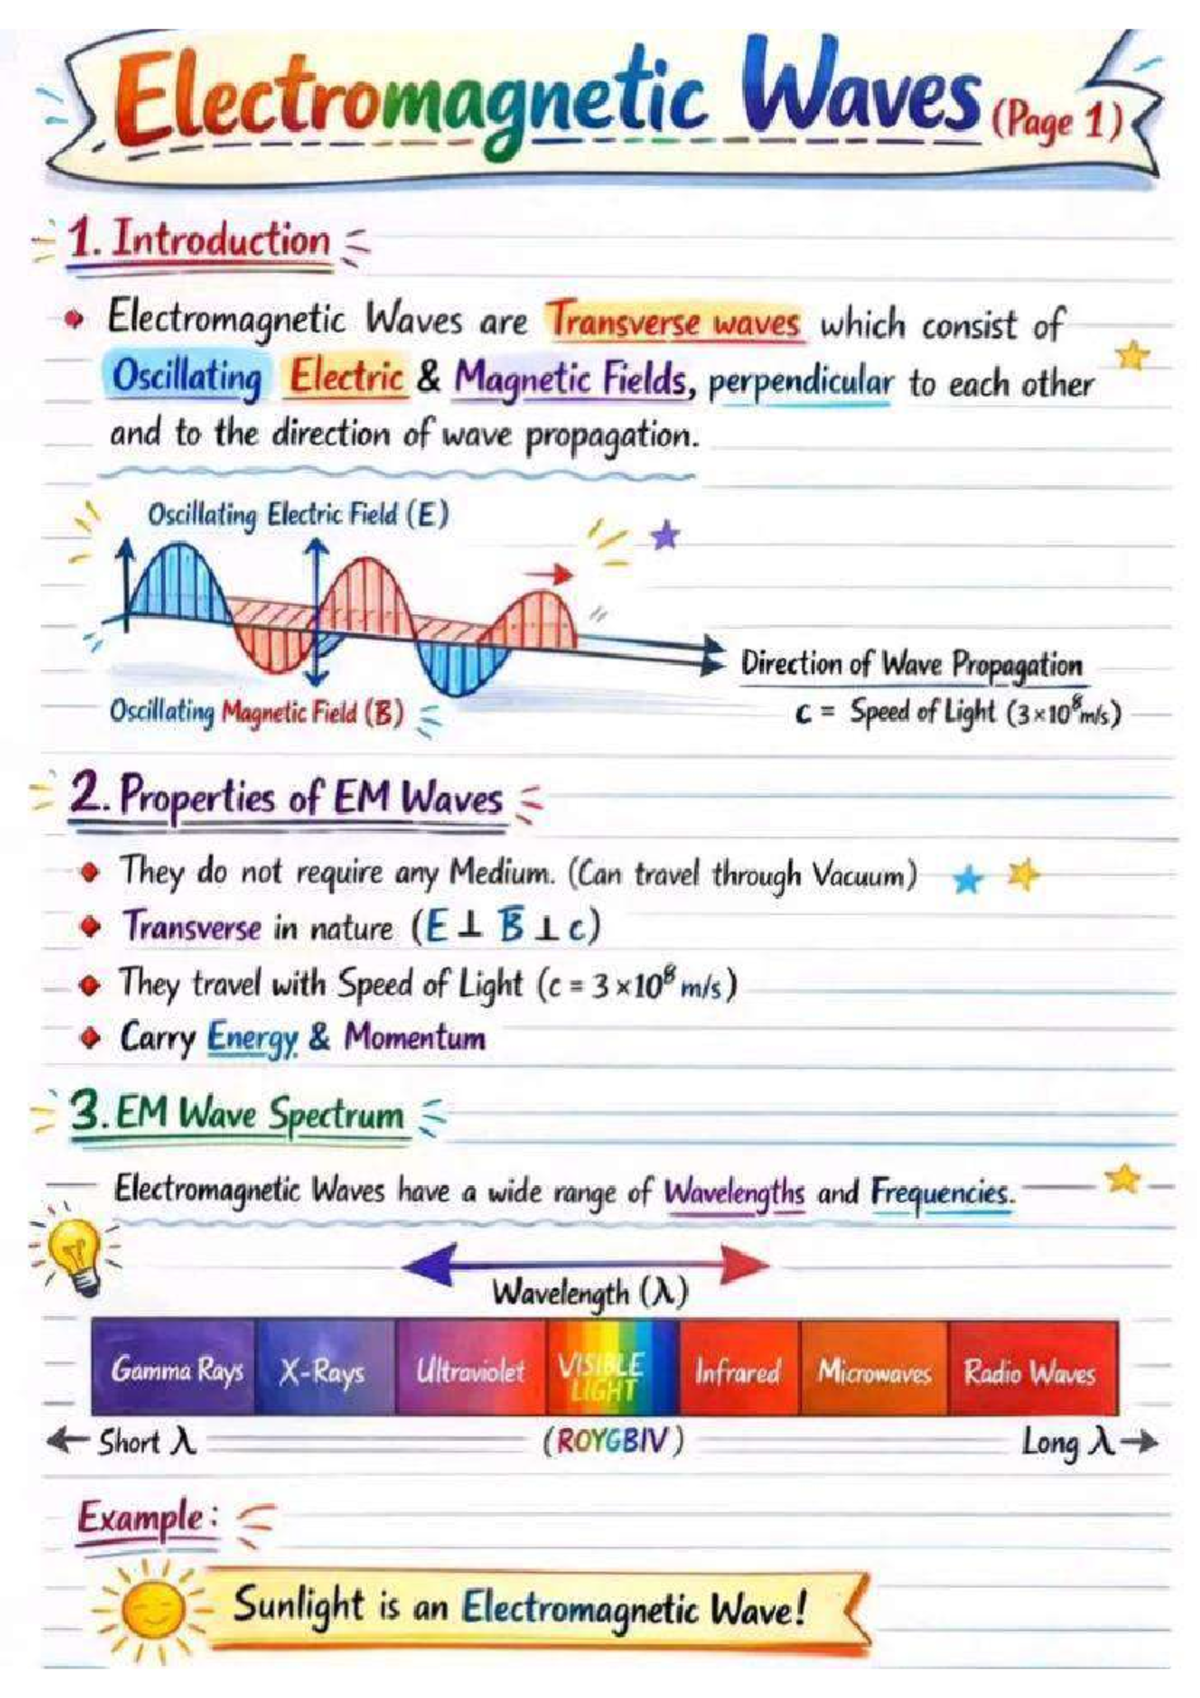 Electromagnetic Waves (Page 1)
1. Introduction
Electromagnetic Waves are Transverse waves which consist of
Oscillating Electric & Magnetic Fields, perpendicular to each other
and to the direction of wave propagation.
Oscillating Electric Field (E)
Direction of Wave Propagation
Oscillating Magnetic Field (B)
c = Speed of Light (3×10⁸m/s)
2. Properties of EM Waves
They do not require any Medium. (Can travel through Vacuum)
Transverse in nature (E ⊥ B ⊥ c)
They travel with Speed of Light (c = 3×10⁸ m/s)
Carry Energy & Momentum
3. EM Wave Spectrum
Electromagnetic Waves have a wide range of Wavelengths and Frequencies.
Wavelength (λ)
Gamma Rays X-Rays Ultraviolet VISIBLE LIGHT Infrared Microwaves Radio Waves
← Short λ (ROYGBIV) Long λ →
Example:
Sunlight is an Electromagnetic Wave!